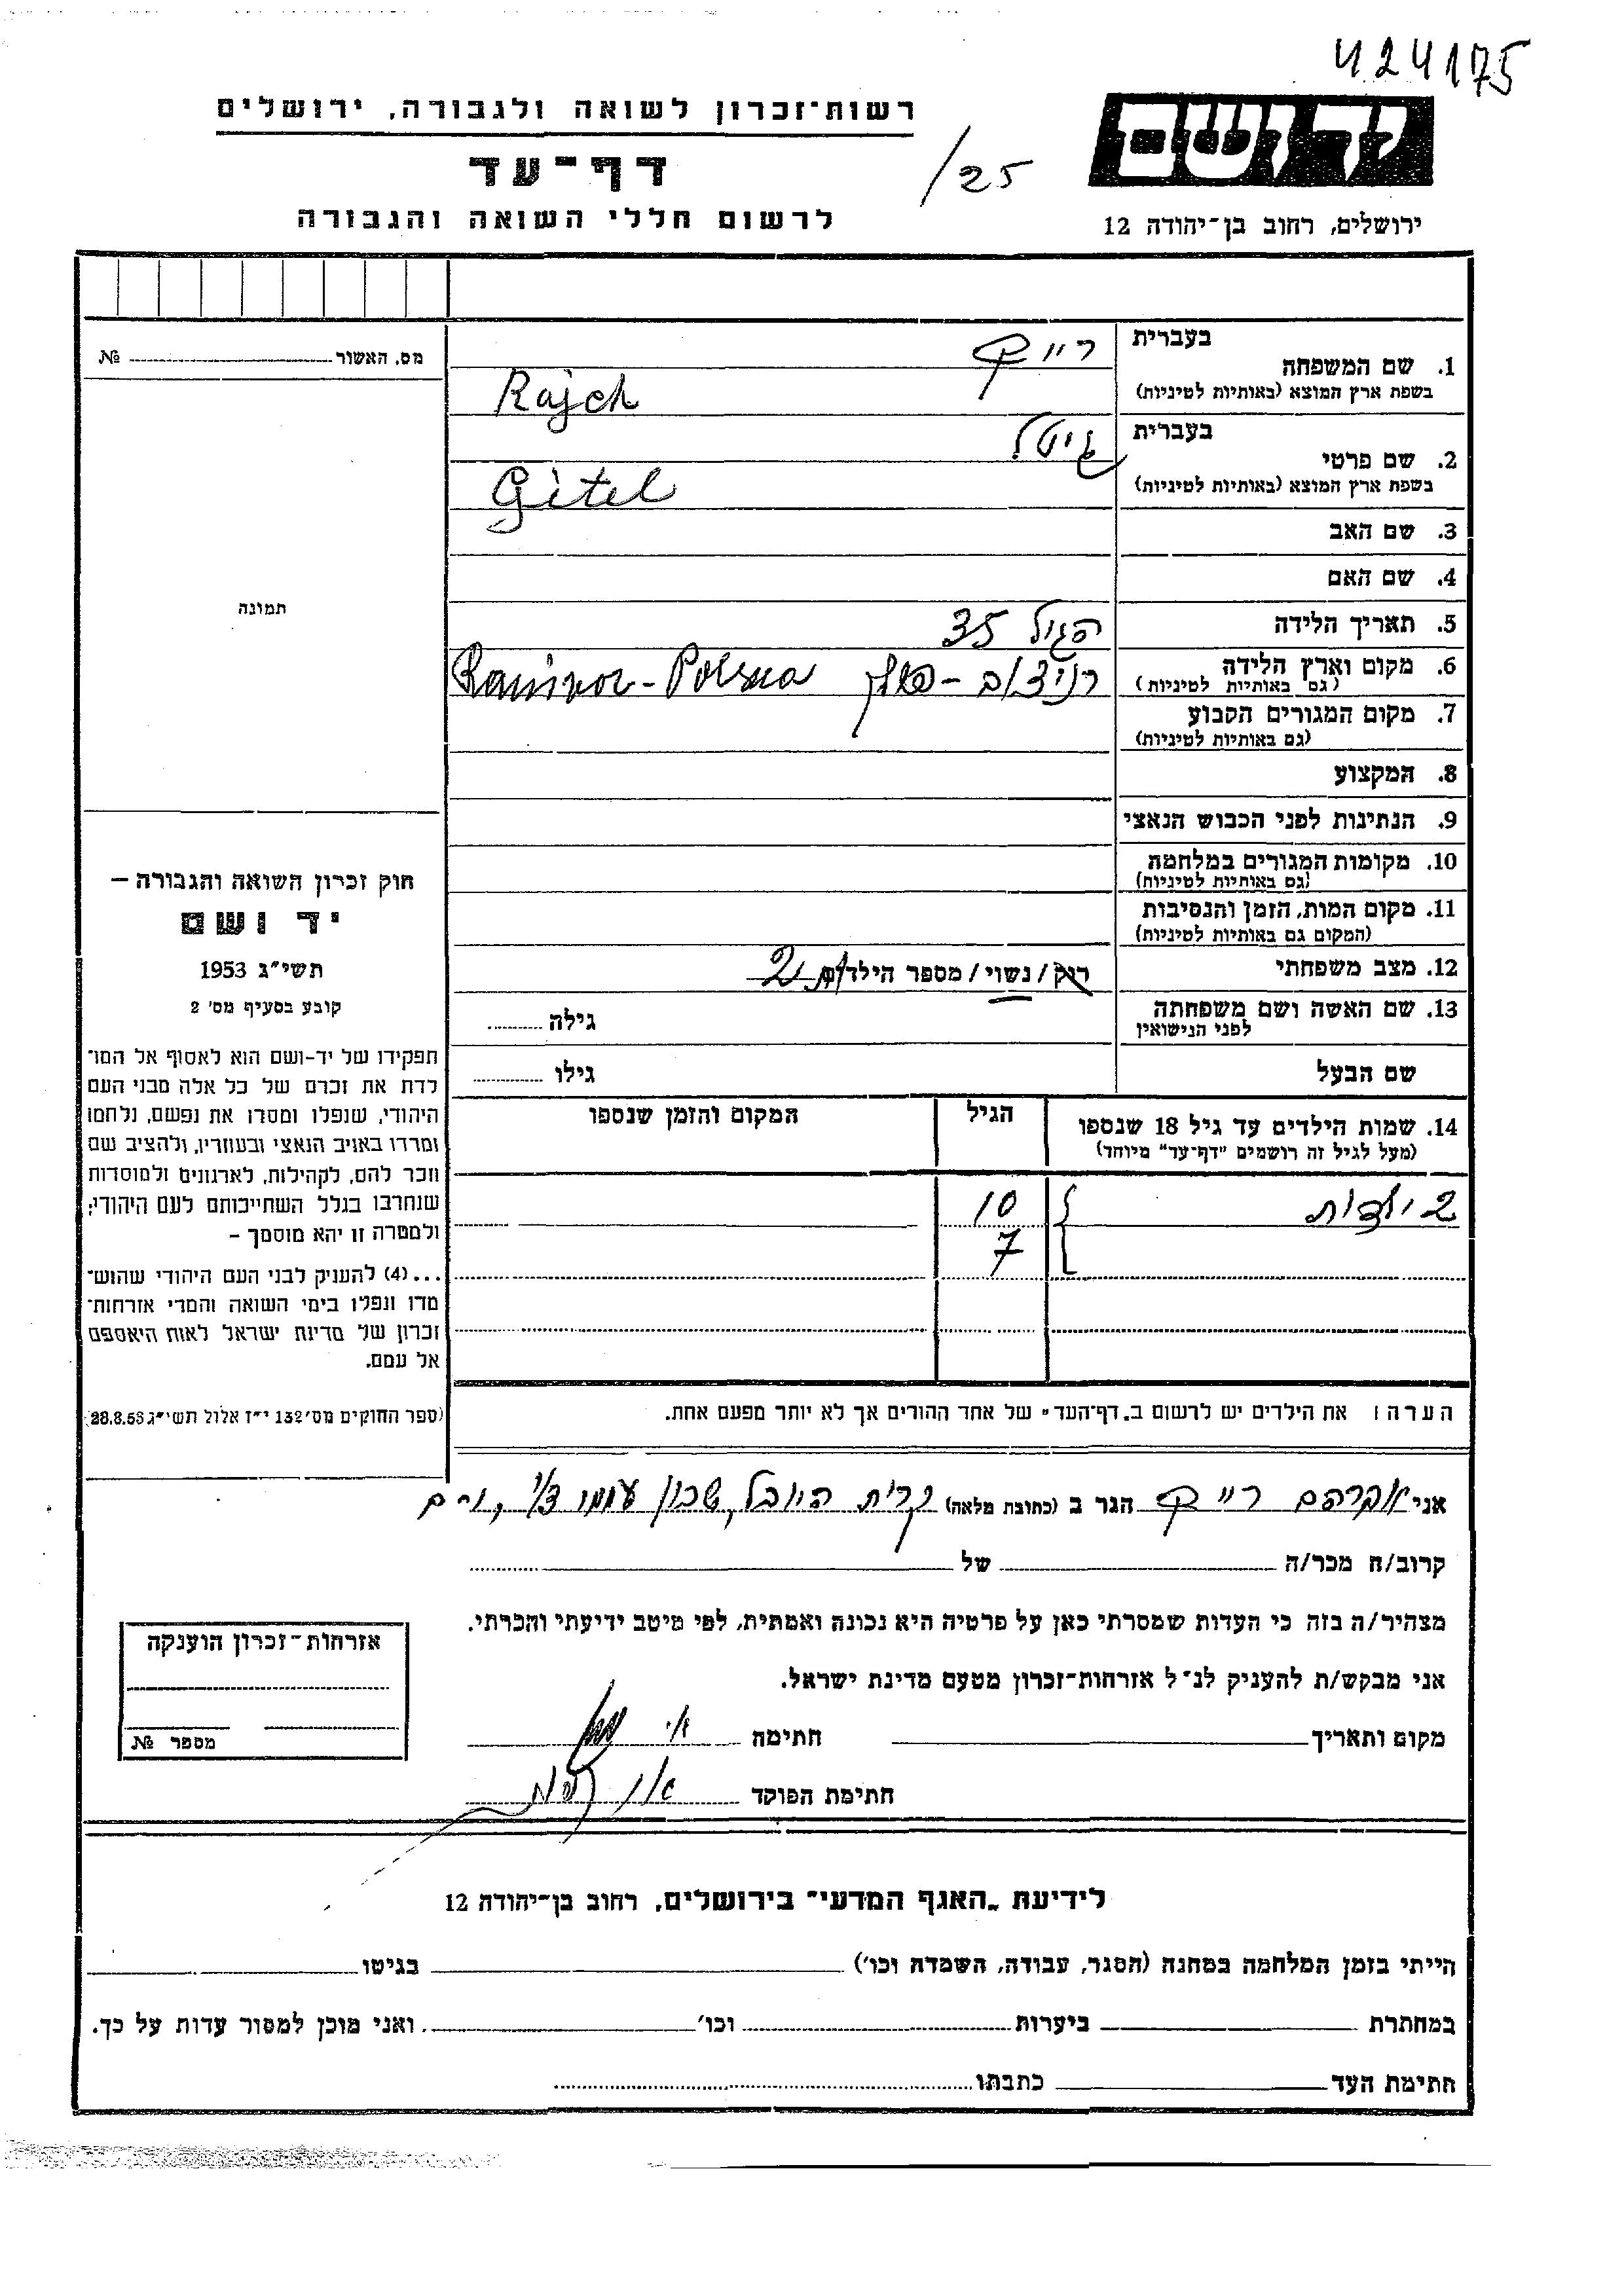 424175
רשות־זכרון לשואה ולגבורה, ירושלים
דף־עד
/25
לרשום חללי השואה והגבורה
יד ושם
ירושלים, רחוב בן־יהודה 12
1. שם המשפחה
בעברית
רייך
בשפת ארץ המוצא (באותיות לטיניות)
Rajch
2. שם פרטי
בעברית
גיטל
בשפת ארץ המוצא (באותיות לטיניות)
Gitel
3. שם האב
4. שם האם
5. תאריך הלידה
בגיל 35
6. מקום וארץ הלידה
(גם באותיות לטיניות)
פולין
7. מקום המגורים הקבוע
(גם באותיות לטיניות)
8. המקצוע
9. הנתינות לפני הכבוש הנאצי
10. מקומות המגורים במלחמה
(גם באותיות לטיניות)
11. מקום המות, הזמן והנסיבות
(המקום גם באותיות לטיניות)
12. מצב משפחתי
רוק/נשוי/מספר הילדים 2
13. שם האשה ושם משפחתה
לפני הנישואין
גילה
שם הבעל
גילו
14. שמות הילדים עד גיל 18 שנספו
(מעל לגיל זה רושמים "דף־עד" מיוחד)
הגיל
המקום והזמן שנספו
2 ילדות
10
7
הערה: את הילדים יש לרשום ב„דף־העד" של אחד ההורים אך לא יותר מפעם אחת.
מס. האשור № 
תמונה
חוק זכרון השואה והגבורה –
יד ושם
תשי"ג 1953
קובע בסעיף מס' 2
תפקידו של יד-ושם הוא לאסוף אל המו־
לדת את זכרם של כל אלה מבני העם
היהודי, שנפלו ומסרו את נפשם, נלחמו
ומרדו באויב הנאצי ובעוזריו, ולהציב שם
וזכר להם, לקהילות, לארגונים ולמוסדות
שנחרבו בגלל השתייכותם לעם היהודי;
ולמטרה זו יהא מוסמך –
...(4) להעניק לבני העם היהודי שהוש־
מדו ונפלו בימי השואה והמרי אזרחות־
זכרון של מדינת ישראל לאות היאספם
אל עמם.
(ספר החוקים מס' 132 י"ז אלול תשי"ג 28.8.53)
אני אברהם רייך הגר ב (כתובת מלאה) קרית היובל, שכון עממי
קרוב/ה מכר/ה של
מצהיר/ה בזה כי העדות שמסרתי כאן על פרטיה היא נכונה ואמתית, לפי מיטב ידיעתי והכרתי.
אני מבקש/ת להעניק לנ"ל אזרחות־זכרון מטעם מדינת ישראל.
מקום ותאריך חתימה
חתימת הפוקד
אזרחות־זכרון הוענקה
מספר №
לידיעת „האגף המדעי" בירושלים, רחוב בן־יהודה 12
הייתי בזמן המלחמה במחנה (הסגר, עבודה, השמדה וכו') בגיטו
במחתרת ביערות וכו' ואני מוכן למסור עדות על כך.
חתימת העד כתבתו